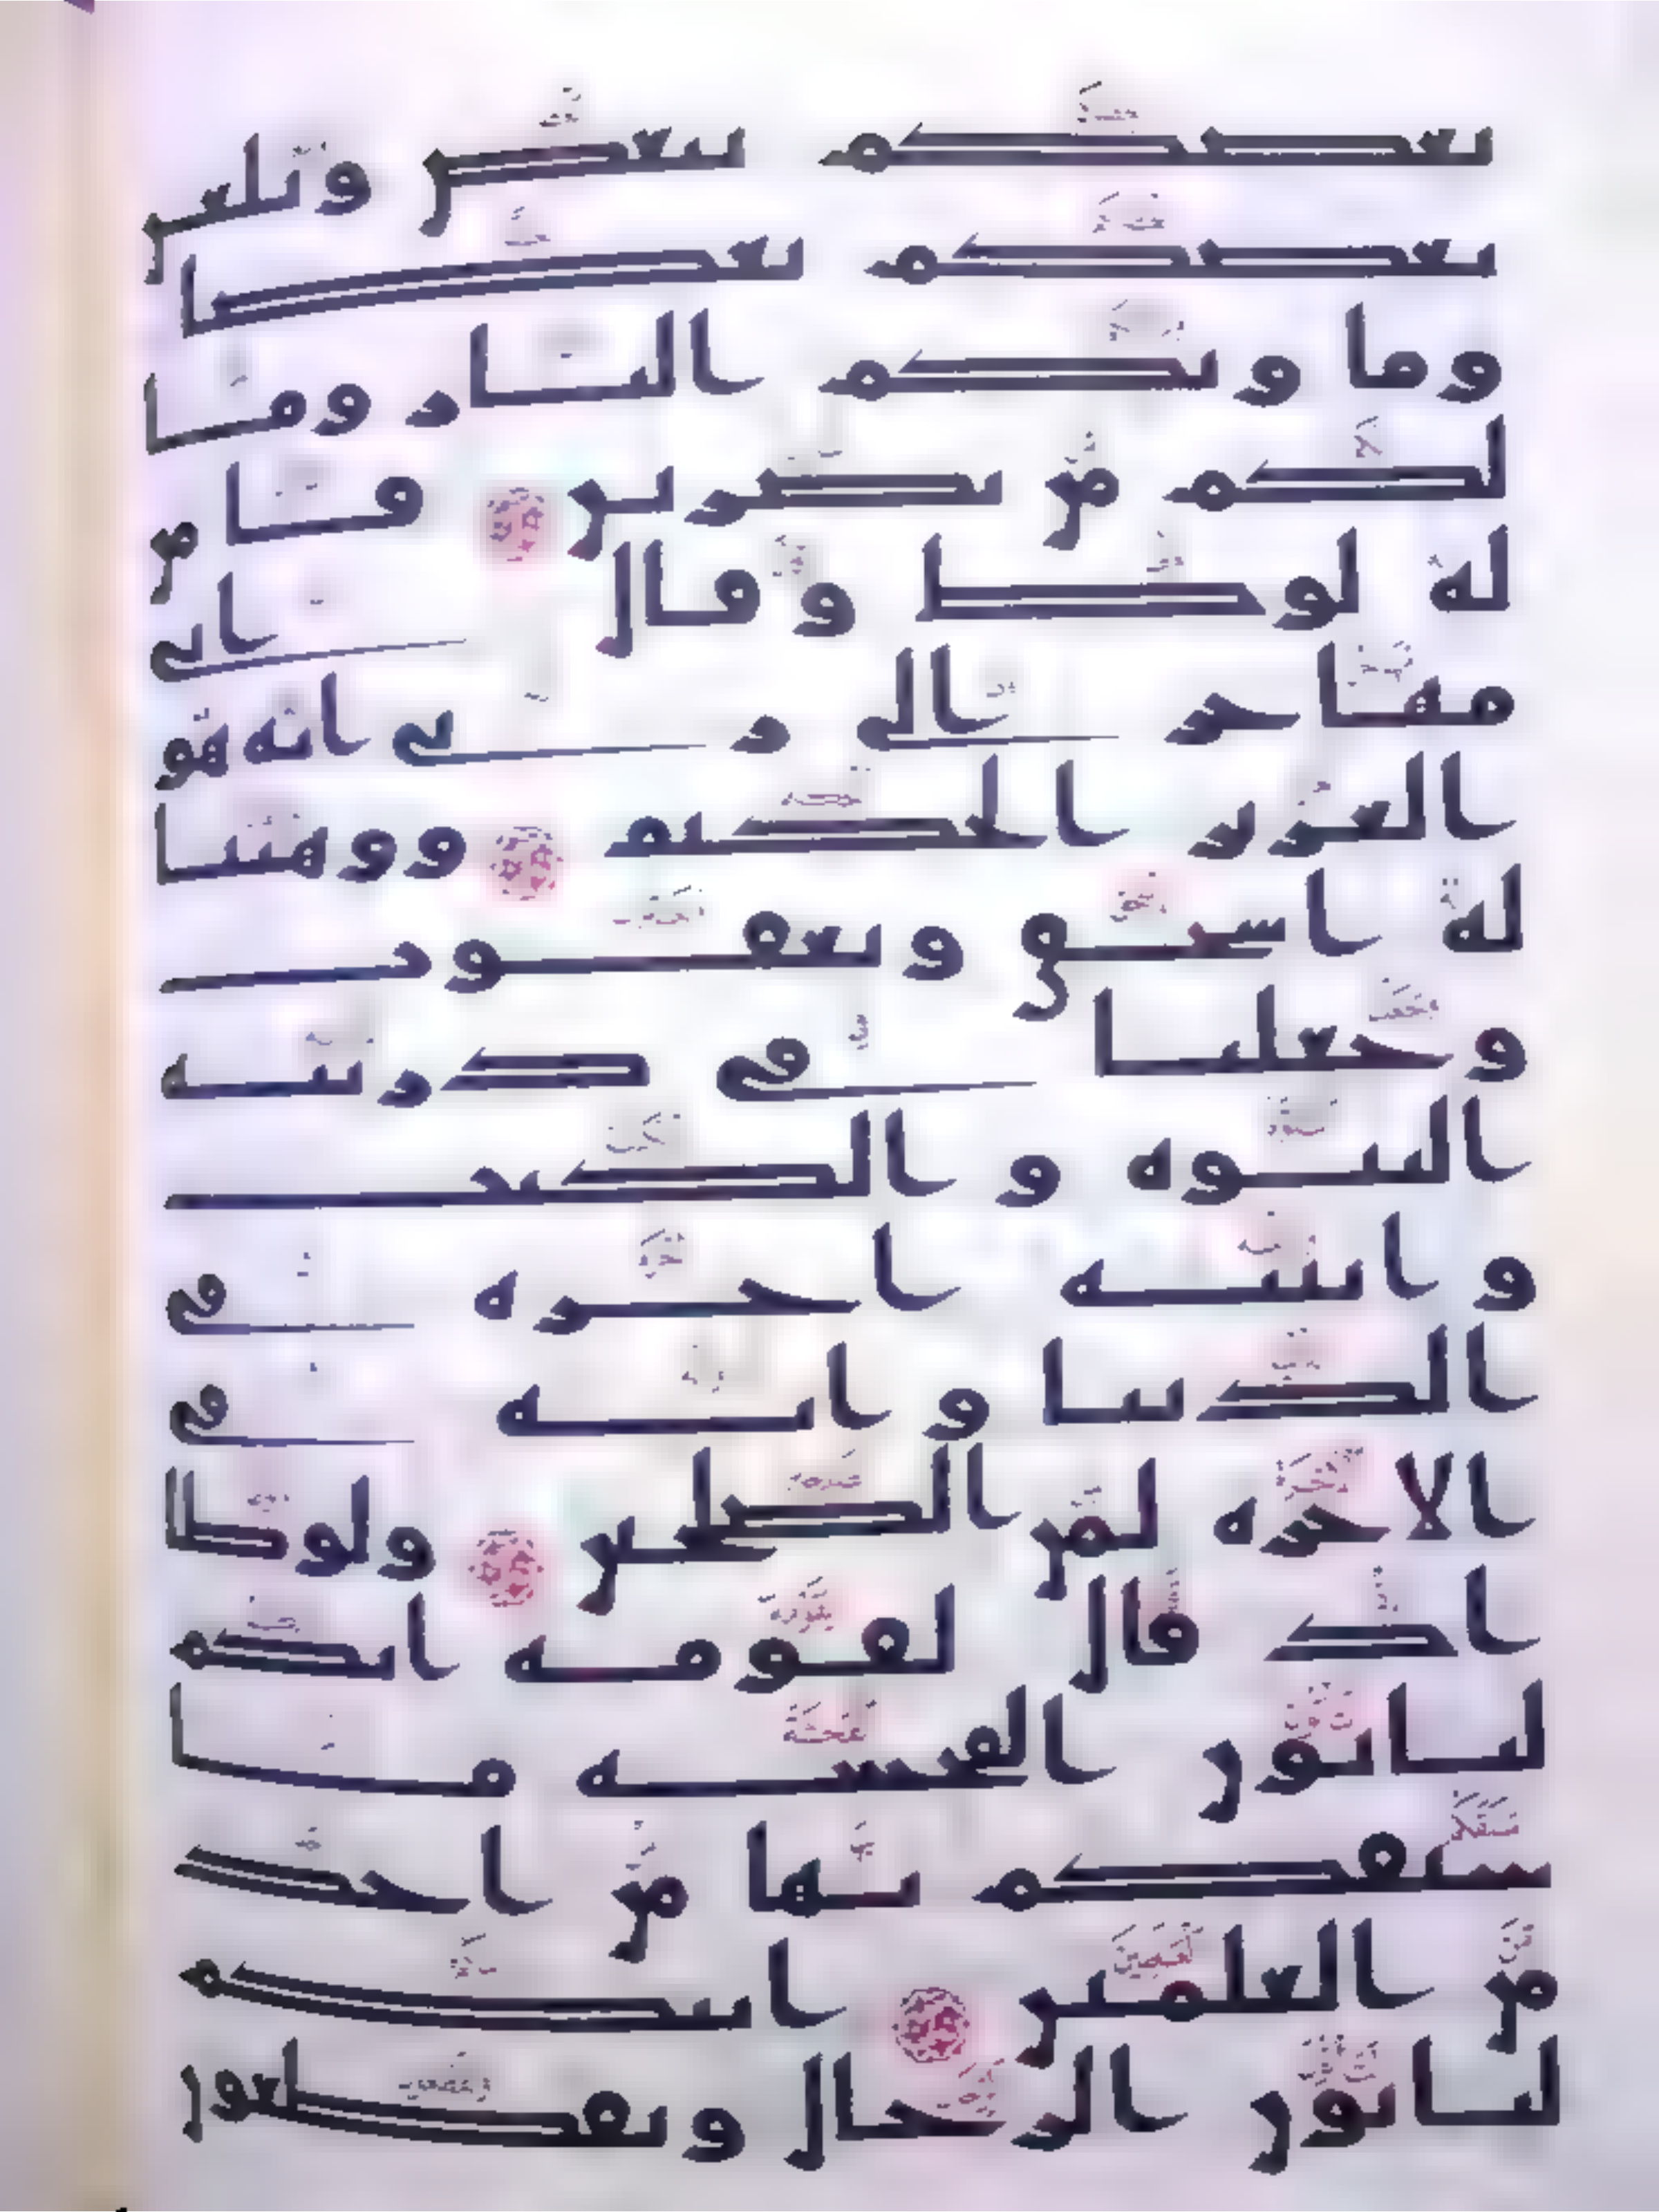 بعضكم ببعض ويلعن
بعضكم بعضا
وما ويكم النار وما
لكم من نصرين فامن
له لوط وقال انى
مهاجر الى ربى انه هو
العزيز الحكيم ووهبنا
له اسحق ويعقوب
وجعلنا فى ذريته
النبوة والكتب
واتينه اجره فى
الدنيا وانه فى
الاخرة لمن الصلحين ولوطا
اذ قال لقومه انكم
لتاتون الفحشة ما
سبقكم بها من احد
من العلمين اينكم
لتاتون الرجال وتقطعون